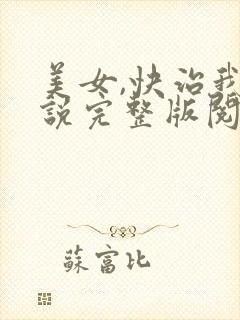 美女,快治我
說完整版閱
蘇富比